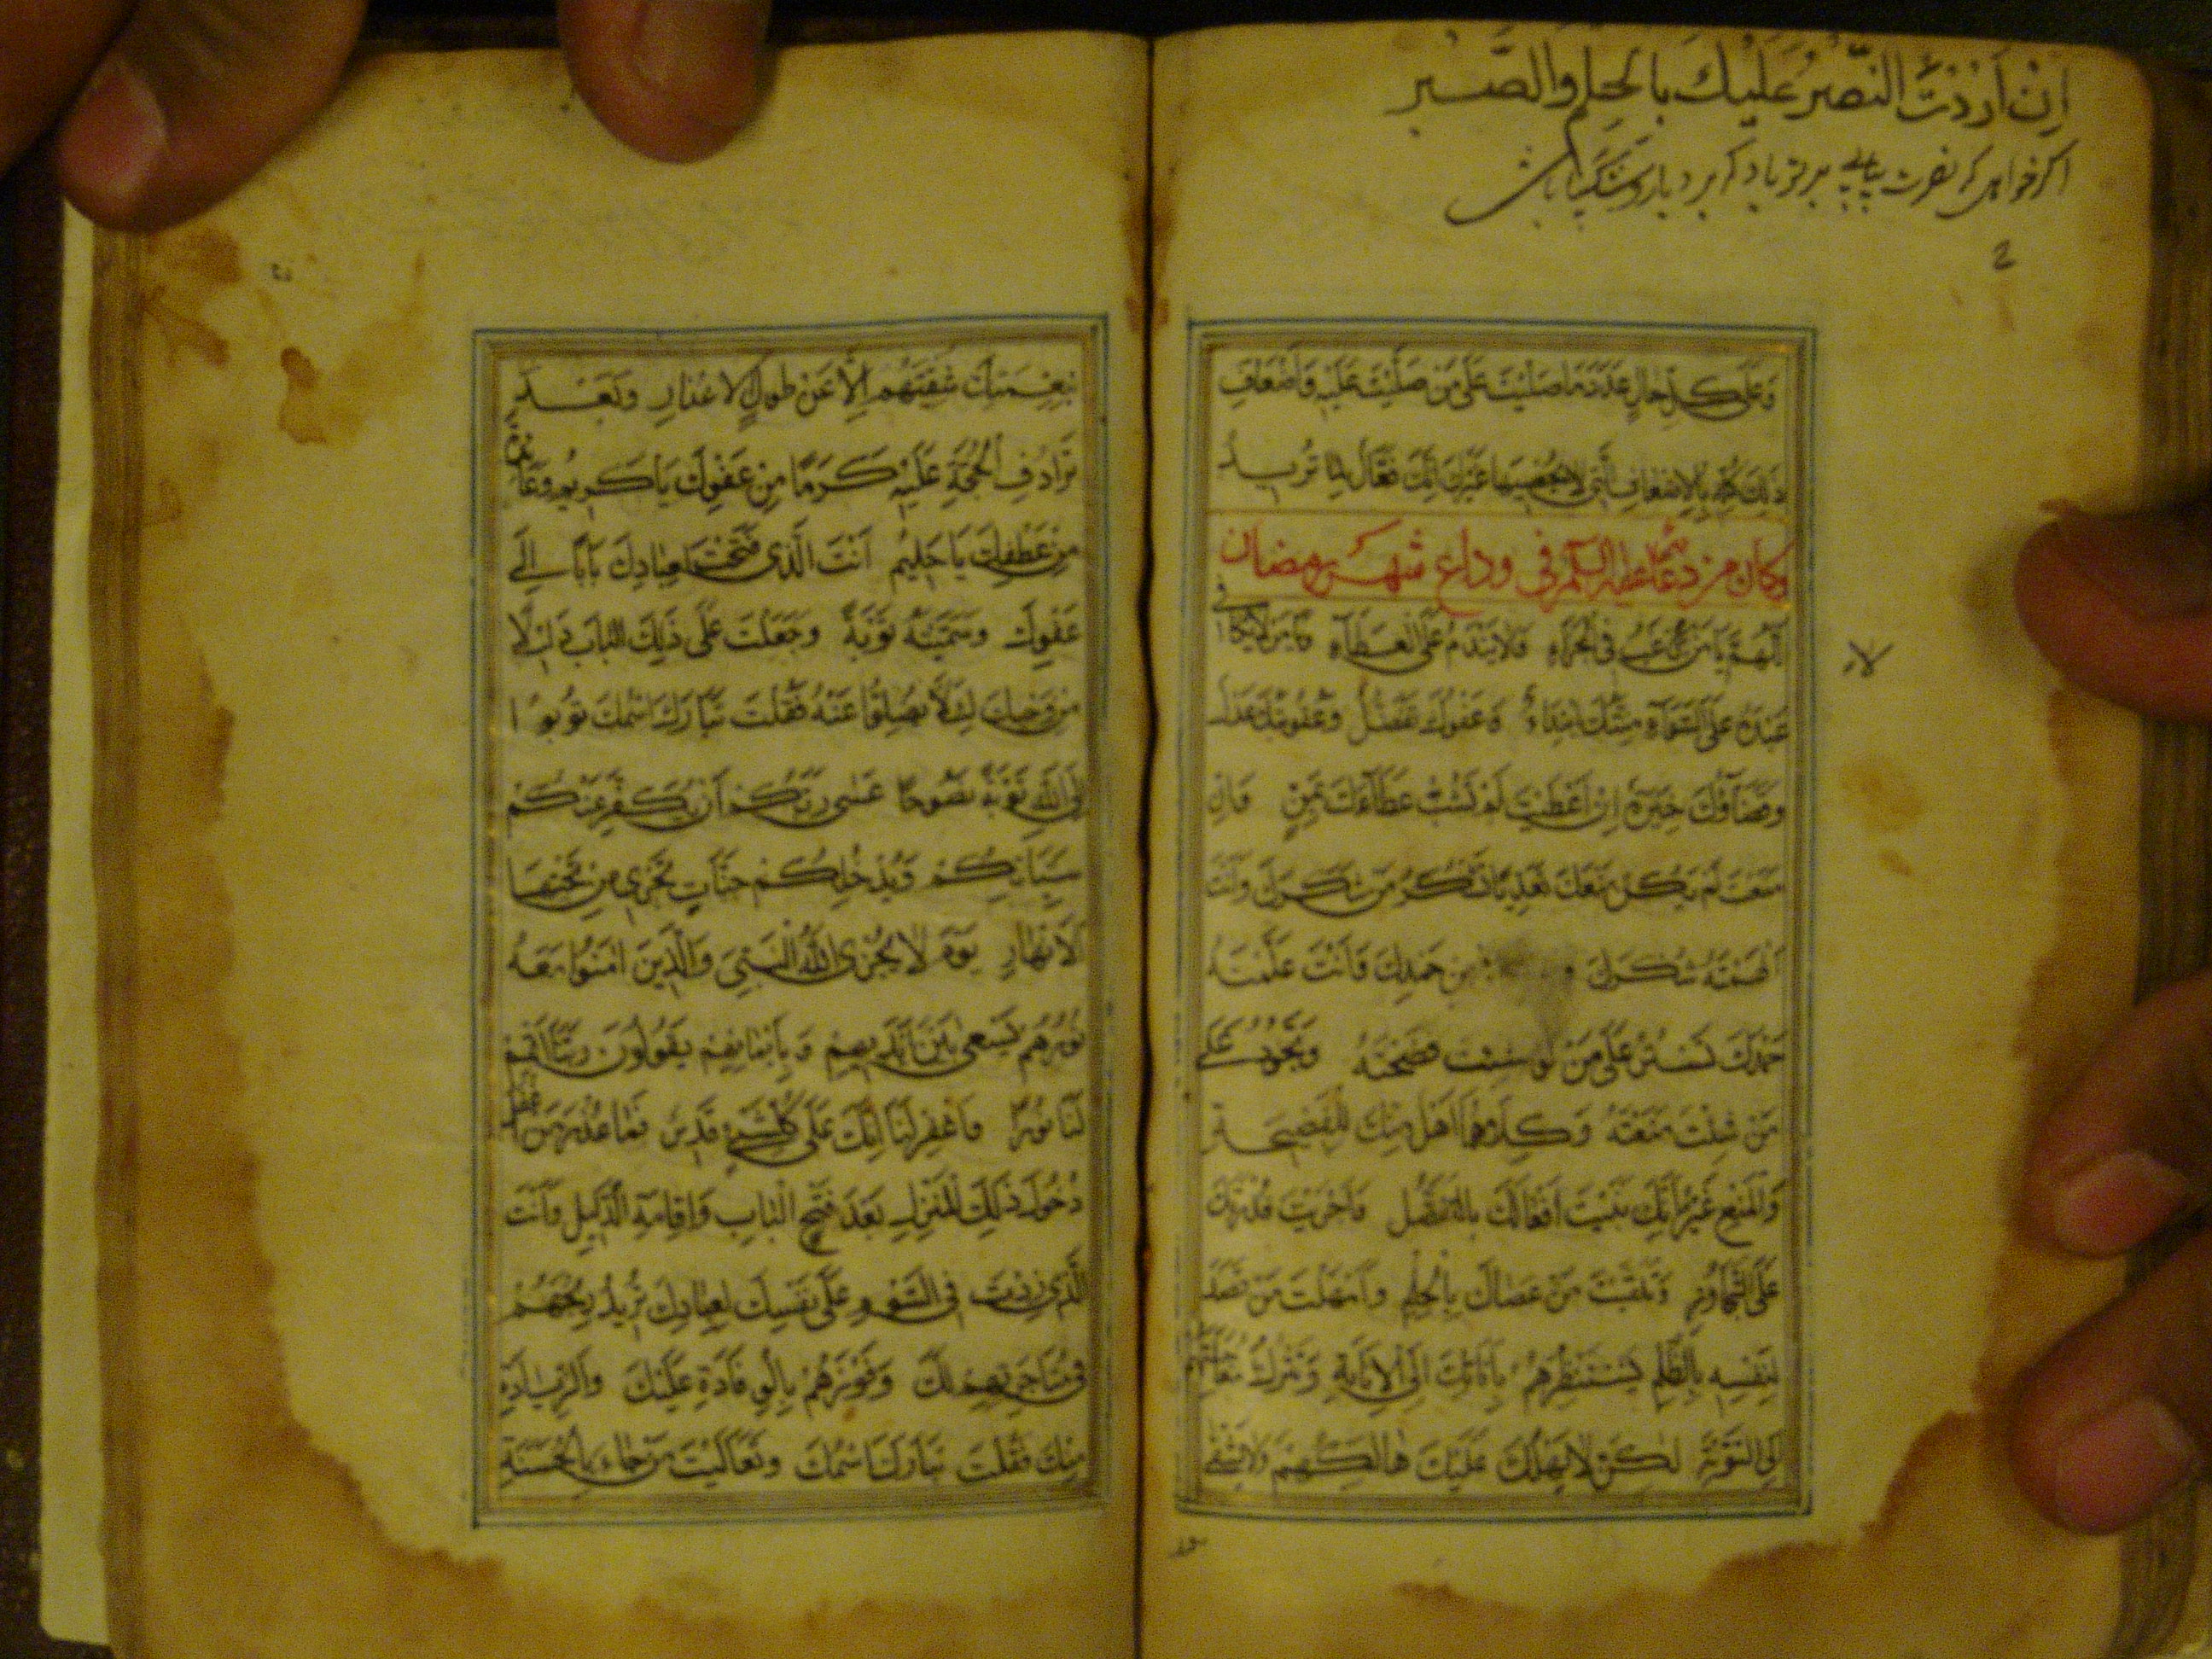 اِنْ اَرَدْتَ النَّصْرَ عَلَيْكَ بِالْحِلْمِ وَالصَّبْرِ
اگر خواهی که نصرت بیابی بر تو باد که بردبار و شکیبا باش
وَعَلَى كُلِّ حَالٍ عَدَدَ مَا صَلَّيْتَ عَلَى مَنْ صَلَّيْتَ عَلَيْهِ وَاَضْعَافِ
ذٰلِكَ كُلِّهِ بِالْاَضْعَافِ الَّتِي لَا يُحْصِيهَا غَيْرُكَ اِنَّكَ فَعَّالٌ لِمَا تُرِيدُ
وكان من دعائه عليه السلام في وداع شهر رمضان
اَللّٰهُمَّ يَا مَنْ لَا يَرْغَبُ فِي الْجَزَاءِ وَلَا يَنْدَمُ عَلَى الْعَطَاءِ وَيَا مَنْ لَا يُكَافِي
عَبْدَهُ عَلَى السَّوَاءِ مِنَّتُكَ ابْتِدَاءٌ وَعَفْوُكَ تَفَضُّلٌ وَعُقُوبَتُكَ عَدْلٌ
وَقَضَاؤُكَ خِيَرَةٌ اِنْ اَعْطَيْتَ لَمْ تَشُبْ عَطَاءَكَ بِمَنٍّ وَاِنْ
مَنَعْتَ لَمْ يَكُنْ مَنْعُكَ تَعَدِّيًا تَشْكُرُ مَنْ شَكَرَكَ وَاَنْتَ
اَلْهَمْتَهُ شُكْرَكَ و مَنْ حَمِدَكَ وَاَنْتَ عَلَّمْتَهُ
حَمْدَكَ تَسْتُرُ عَلَى مَنْ لَوْ شِئْتَ فَضَحْتَهُ وَتَجُودُ عَلَى
مَنْ شِئْتَ مَنَعْتَهُ وَكِلَاهُمَا اَهْلٌ مِنْكَ لِلْفَضِيحَةِ
وَالْمَنْعِ غَيْرَ اَنَّكَ بَنَيْتَ اَفْعَالَكَ بِالتَّفَضُّلِ وَاَجْرَيْتَ قُدْرَتَكَ
عَلَى التَّجَاوُزِ وَتَلَقَّيْتَ مَنْ عَصَاكَ بِالْحِلْمِ وَاَمْهَلْتَ مَنْ قَصَدَ
لِنَفْسِهِ بِالظُّلْمِ تَسْتَنْظِرُهُمْ بِاَنَاتِكَ اِلَى الْاِنَابَةِ وَتَتْرُكُ مُعَاجَلَتَهُمْ
اِلَى التَّوْبَةِ لِكَيْ لَا يَهْلِكَ عَلَيْكَ هَالِكُهُمْ وَلَا يَشْقَى
بِنِعْمَتِكَ شَقِيُّهُمْ اِلَّا عَنْ طُولِ الْاِعْذَارِ وَبَعْدَ
تَرَادُفِ الْحُجَّةِ عَلَيْهِ كَرَمًا مِنْ عَفْوِكَ يَا كَرِيمُ وَعَائِدَةً
مِنْ عَطْفِكَ يَا حَلِيمُ اَنْتَ الَّذِي فَتَحْتَ لِعِبَادِكَ بَابًا اِلَى
عَفْوِكَ وَسَمَّيْتَهُ تَوْبَةً وَجَعَلْتَ عَلَى ذٰلِكَ الْبَابِ دَلِيلًا
مِنْ وَحْيِكَ لِئَلَّا يَضِلُّوا عَنْهُ فَقُلْتَ تَبَارَكَ اسْمُكَ تُوبُوا
اِلَى اللّٰهِ تَوْبَةً نَصُوحًا عَسٰى رَبُّكُمْ اَنْ يُكَفِّرَ عَنْكُمْ
سَيِّئَاتِكُمْ وَيُدْخِلَكُمْ جَنَّاتٍ تَجْرِي مِنْ تَحْتِهَا
الْاَنْهَارُ يَوْمَ لَا يُخْزِي اللّٰهُ النَّبِيَّ وَالَّذِينَ اٰمَنُوا مَعَهُ
نُورُهُمْ يَسْعٰى بَيْنَ اَيْدِيهِمْ وَبِاَيْمَانِهِمْ يَقُولُونَ رَبَّنَا اَتْمِمْ
لَنَا نُورَنَا وَاغْفِرْ لَنَا اِنَّكَ عَلَى كُلِّ شَيْءٍ قَدِيرٌ فَمَا عُذْرُ مَنْ اَغْفَلَ
دُخُولَ ذٰلِكَ الْمَنْزِلِ بَعْدَ فَتْحِ الْبَابِ وَاِقَامَةِ الدَّلِيلِ وَاَنْتَ
الَّذِي زِدْتَ فِي السَّوْمِ عَلَى نَفْسِكَ لِعِبَادِكَ تُرِيدُ رِبْحَهُمْ
فِي مُتَاجَرَتِهِمْ لَكَ وَفَوْزَهُمْ بِالْوِفَادَةِ عَلَيْكَ وَالزِّيَادَةِ
مِنْكَ فَقُلْتَ تَبَارَكَ اسْمُكَ وَتَعَالَيْتَ مَنْ جَاءَ بِالْحَسَنَةِ